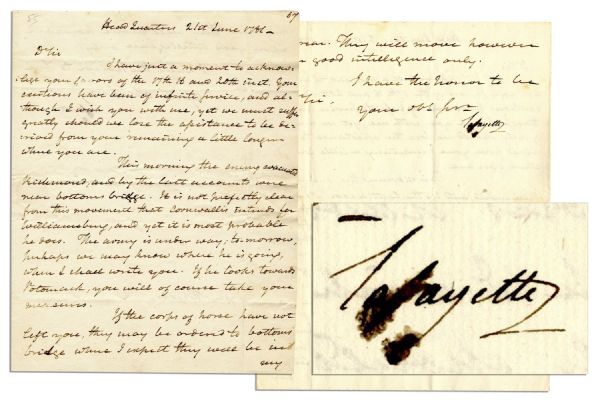 55
69
Head Quarters 21st June 1781
Dr Sir
I have just a moment to acknow
ledge your favors of the 17th 18 and 20th inst. Your
exertions have been of infinite service, and al-
though I wish you with me, yet we must suffer
greatly should we lose the assistance to be de-
rived from your remaining a little longer
where you are.
This morning the enemy evacuated
Richmond, and by the last accounts were
near bottoms bridge. It is not perfectly clear
from this movement that Cornwallis intends for
Williamsburg, and yet it is most probable
he does. The army is under way; to-morrow,
perhaps we may know where he is going,
when I shall write you. If he looks towards
Potomack, you will of course take your
measures.
If the corps of horse have not
left you, they may be ordered to bottoms
bridge where I expect they will be in
my
rear. They will move however
good intelligence only.
I have the honor to be
Sir
your obt Svt
Lafayette
Lafayette